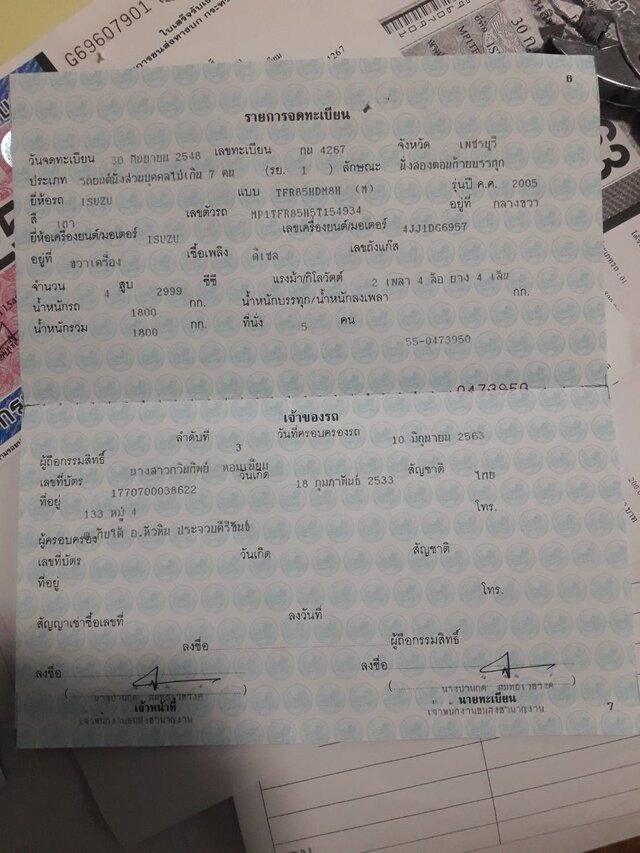 G69607901
ใบเสร็จรับเงิน
4267
30 ก
6
รายการจดทะเบียน
วันจดทะเบียน 30 กันยายน 2548 เลขทะเบียน กน 4267 จังหวัด เพชรบุรี
ประเภท รถยนต์นั่งส่วนบุคคลไม่เกิน 7 คน (รย. 1 ) ลักษณะ นั่งสองตอนท้ายบรรทุก
ยี่ห้อรถ ISUZU แบบ TFR85HDM8H (M) รุ่นปี ค.ศ. 2005
สี เทา เลขตัวรถ MP1TFR85H5T154934 อยู่ที่ กลางขวา
ยี่ห้อเครื่องยนต์/มอเตอร์ ISUZU เลขเครื่องยนต์/มอเตอร์ 4JJ1DG6957
อยู่ที่ ขวาเครื่อง เชื้อเพลิง ดีเซล เลขถังแก๊ส
จำนวน 4 สูบ 2999 ซีซี แรงม้า/กิโลวัตต์ 2 เพลา 4 ล้อ ยาง 4 เส้น
น้ำหนักรถ 1800 กก. น้ำหนักบรรทุก/น้ำหนักลงเพลา กก.
น้ำหนักรวม 1800 กก. ที่นั่ง 5 คน
55-0473950
0473950
เจ้าของรถ
ลำดับที่ 3 วันที่ครอบครองรถ 10 มิถุนายน 2563
ผู้ถือกรรมสิทธิ์ นางสาวกวินทิพย์ หอมเนียม
เลขที่บัตร 1770700038622 วันเกิด 18 กุมภาพันธ์ 2533 สัญชาติ ไทย
ที่อยู่ 133 หมู่ 4 โทร.
ผู้ครอบครอง อ.หัวหิน ประจวบคีรีขันธ์
เลขที่บัตร วันเกิด สัญชาติ
ที่อยู่ โทร.
สัญญาเช่าซื้อเลขที่ ลงวันที่
ลงชื่อ ผู้ถือกรรมสิทธิ์
ลงชื่อ ลงชื่อ
เจ้าหน้าที่ นายทะเบียน
เจ้าพนักงานขนส่งชำนาญงาน เจ้าพนักงานขนส่งชำนาญงาน
7